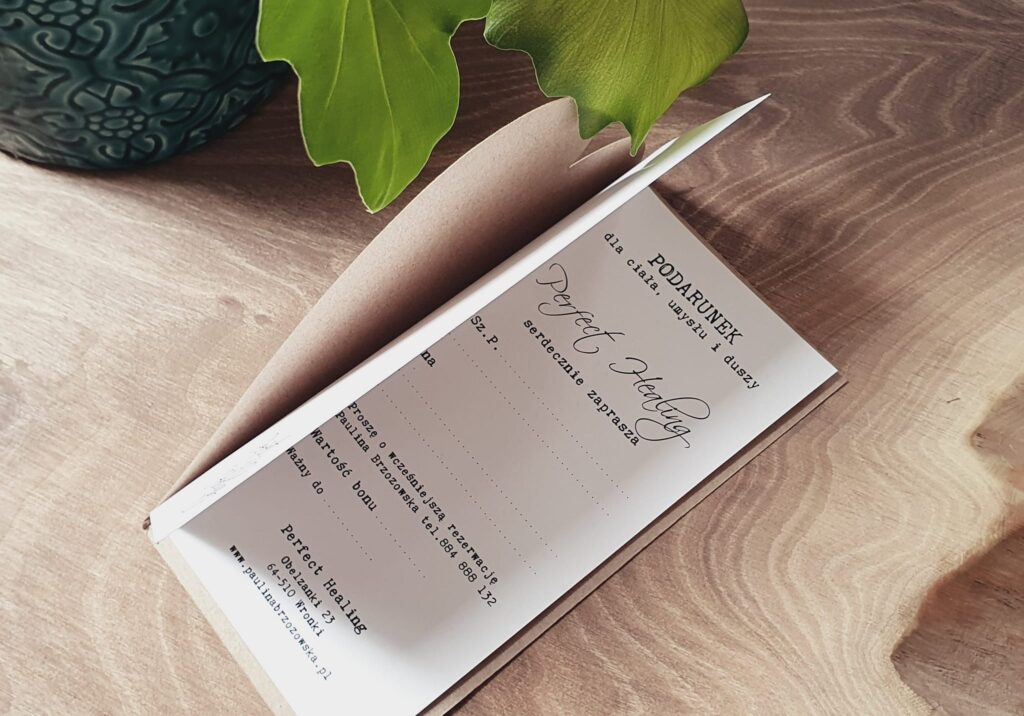 PODARUNEK
dla ciała, umysłu i duszy
Perfect Healing
serdecznie zaprasza
Sz.P.
na
Proszę o wcześniejszą rezerwację
Paulina Brzozowska tel.884 888 132
Wartość bonu
Ważny do
Perfect Healing
Obelzanki 23
64-510 Wronki
www.paulinabrzozowska.pl